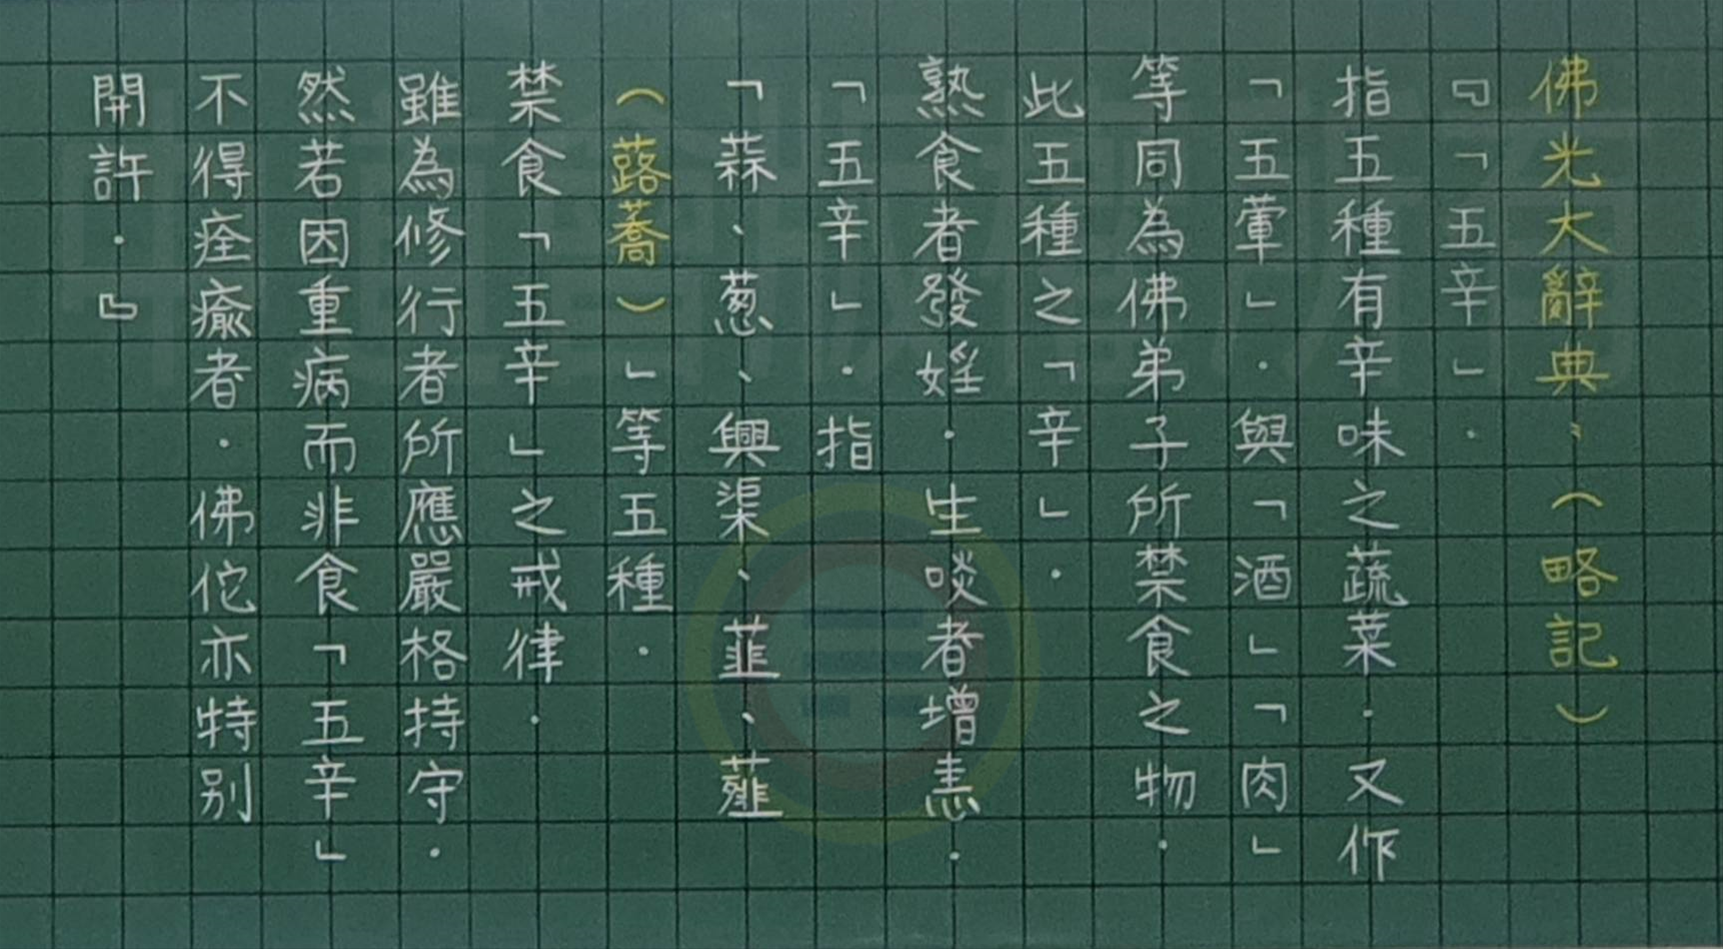 佛光大辭典:(略記)
『「五辛」.
指五種有辛味之蔬菜.又作
「五葷」.與「酒」「肉」
等同為佛弟子所禁食之物.
此五種之「辛」.
熟食者發婬.生啖者增恚.
「五辛」.指
「蒜、葱、興渠、韮、薤
(蕗蕎)」等五種.
禁食「五辛」之戒律.
雖為修行者所應嚴格持守.
然若因重病而非食「五辛」
不得痊癒者.佛佗亦特別
開許.』